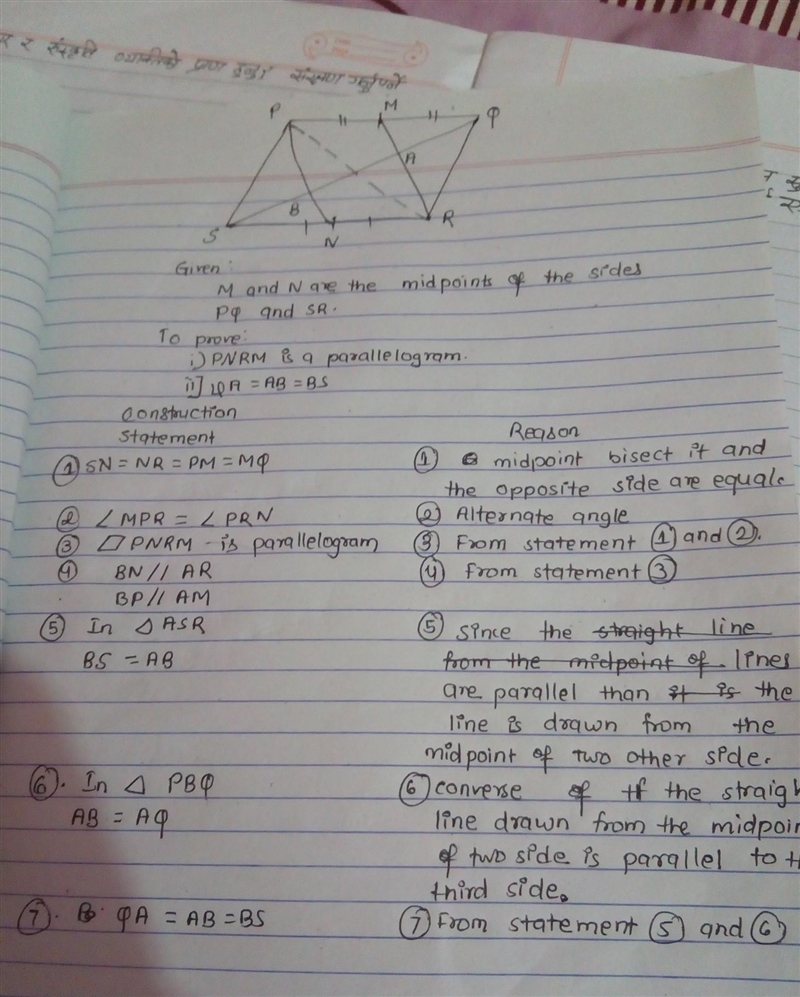 र संस्कृति
P M Q
A
B
S N R
Given:
M and N are the midpoints of the sides
PQ and SR.
To prove:
i) PNRM is a parallelogram.
ii] QA = AB = BS
Construction
Statement Reason
① SN = NR = PM = MQ ① midpoint bisect it and
the opposite side are equal.
② ∠MPR = ∠PRN ② Alternate angle
③ ▱ PNRM - is parallelogram ③ From statement ① and ②.
④ BN // AR ④ from statement ③
BP // AM
⑤ In △ ASR ⑤ Since the straight line
BS = AB from the midpoint of. lines
are parallel than it is the
line is drawn from the
midpoint of two other side.
⑥. In △ PBQ ⑥ converse of If the straigh
AB = AQ line drawn from the midpoin
of two side is parallel to th
third side.
⑦. QA = AB = BS ⑦ From statement ⑤ and ⑥